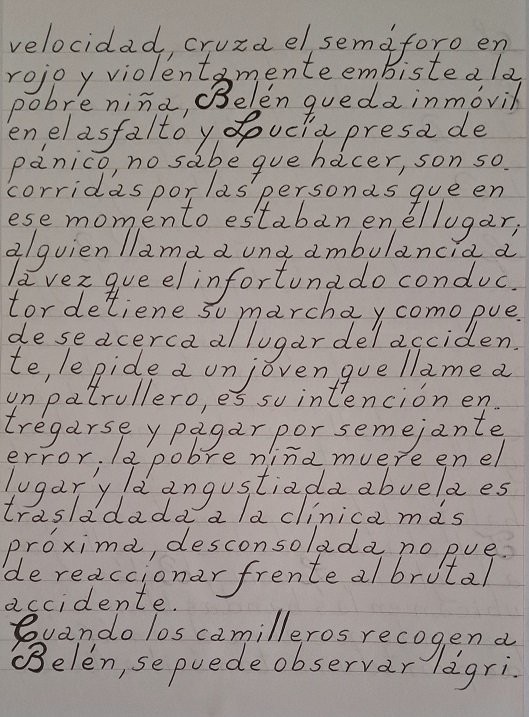 velocidad, cruza el semáforo en
rojo y violentamente embiste a la
pobre niña, Belén queda inmóvil
en el asfalto y Lucía presa de
pánico, no sabe que hacer, son so.
corridas por las personas que en
ese momento estaban en el lugar;
alguien llama a una ambulancia a
la vez que el infortunado conduc.
tor detiene su marcha y como pue.
de se acerca al lugar del acciden.
te, le pide a un joven que llame a
un patrullero, es su intención en.
tregarse y pagar por semejante
error; la pobre niña muere en el
lugar y la angustiada abuela es
trasladada a la clínica más
próxima, desconsolada no pue.
de reaccionar frente al brutal
accidente.
Cuando los camilleros recogen a
Belén, se puede observar lágri.